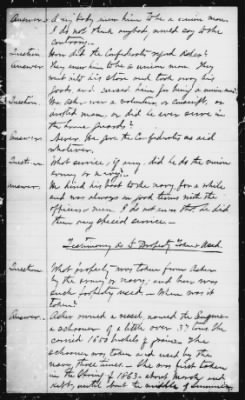 Answer. Anybody knew him to be a union man
I do not think anybody would say to the
contrary.
Question How did the Confederates regard Asher?
Answer. They knew him to be a union man. They
went into his store and took away his
goods, and cursed him for being a union man.
Question. Was Asher ever a volunteer, or conscript, or
drafted man, or did he ever serve in
the home guards?
Answer. Never for the Confederates as aid
whatever.
Question What service, if any, did he do the union
army or navy?
Answer. He hired his boat to the navy, for a while
and was always on good terms with the
officers & men. I do not know that he did
them any special service.
Testimony as to Property Taken & Used.
Question What property was taken from Asher
by the army or navy; and how was
such property used. When was it
taken?
Answer. Asher owned a vessel named the
a schooner of a little over 37 tons. She
carried 1650 bushels of grain. The
schooner was taken and used by the
navy, three times. She was first taken
in the Spring of 1863 about March and
kept until about the middle of Summer